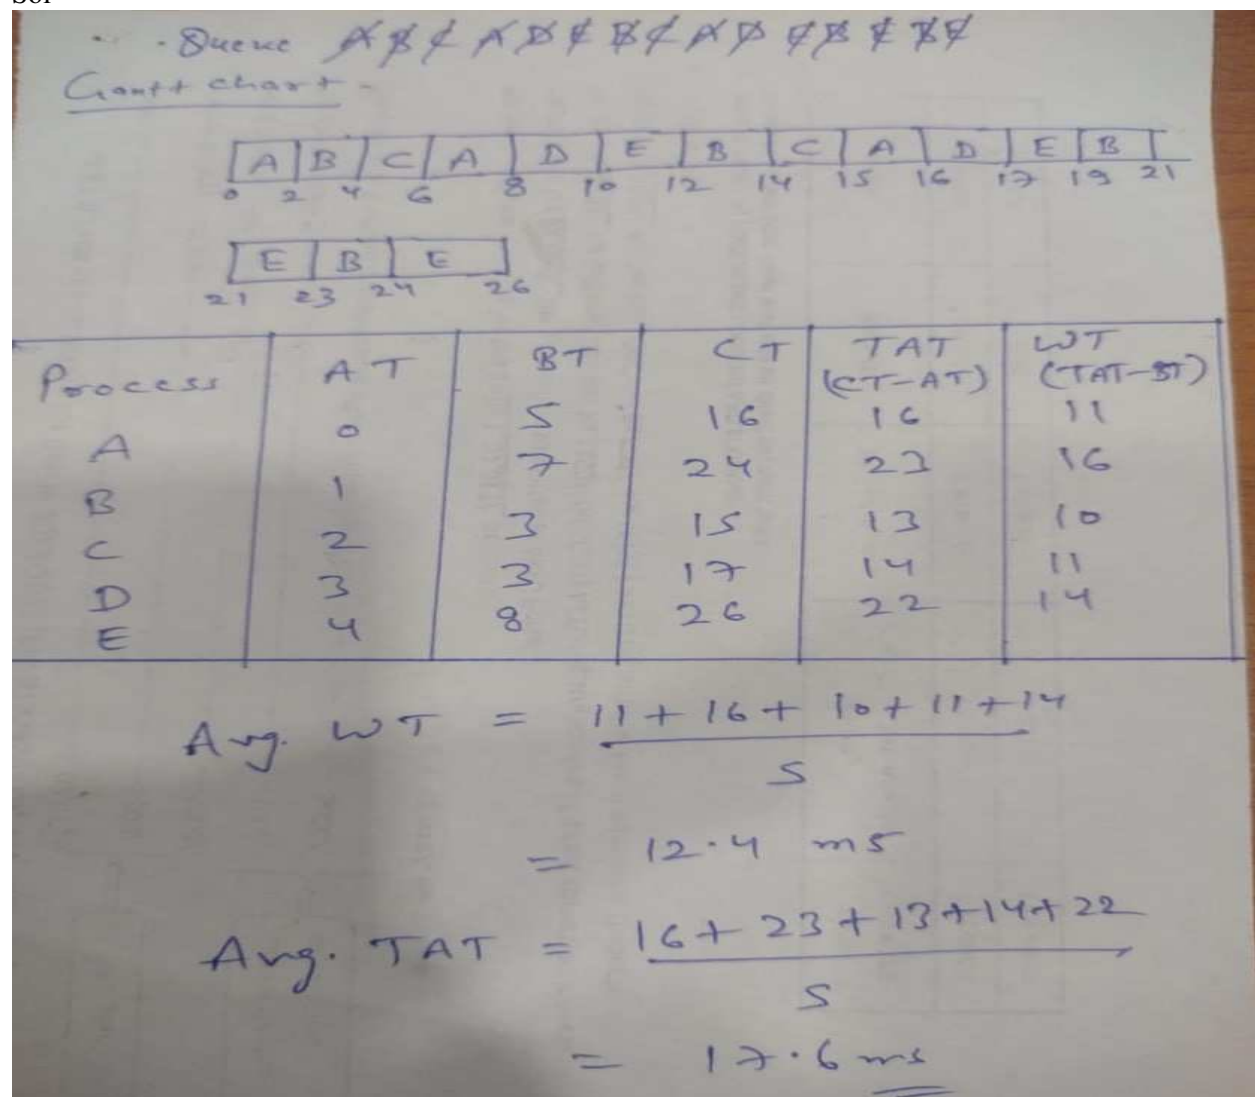 Sol
Queue A B C A D E B C A D E B E B E
Gantt chart -
A B C A D E B C A D E B
0 2 4 6 8 10 12 14 15 16 17 19 21
E B E
21 23 24 26
Process AT BT CT TAT (CT-AT) WT (TAT-BT)
A 0 5 16 16 11
B 1 7 24 23 16
C 2 3 15 13 10
D 3 3 17 14 11
E 4 8 26 22 14
Avg. WT = 11 + 16 + 10 + 11 + 14
5
= 12.4 ms
Avg. TAT = 16 + 23 + 13 + 14 + 22
5
= 17.6 ms